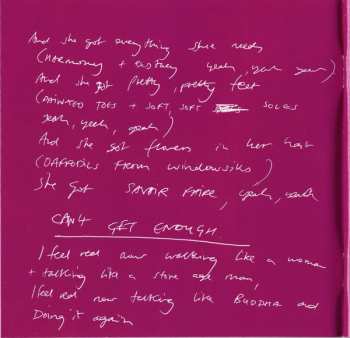 And she got everything she needs
(HARMONEY + ECSTASY yeah, yeah yeah)
And she got pretty, pretty feet
(PAINTED TOES + SOFT, SOFT SOLES
yeah, yeah, yeah)
And she got flowers in her hair
(DAFFODILS FROM WINDOWSILLS)
She got SAVOIR FAIRE, yeah, yeah
CAN'T GET ENOUGH
I feel real now walking like a woman
+ talking like a stone age man,
I feel real now talking like BUDDHA and
Doing it again